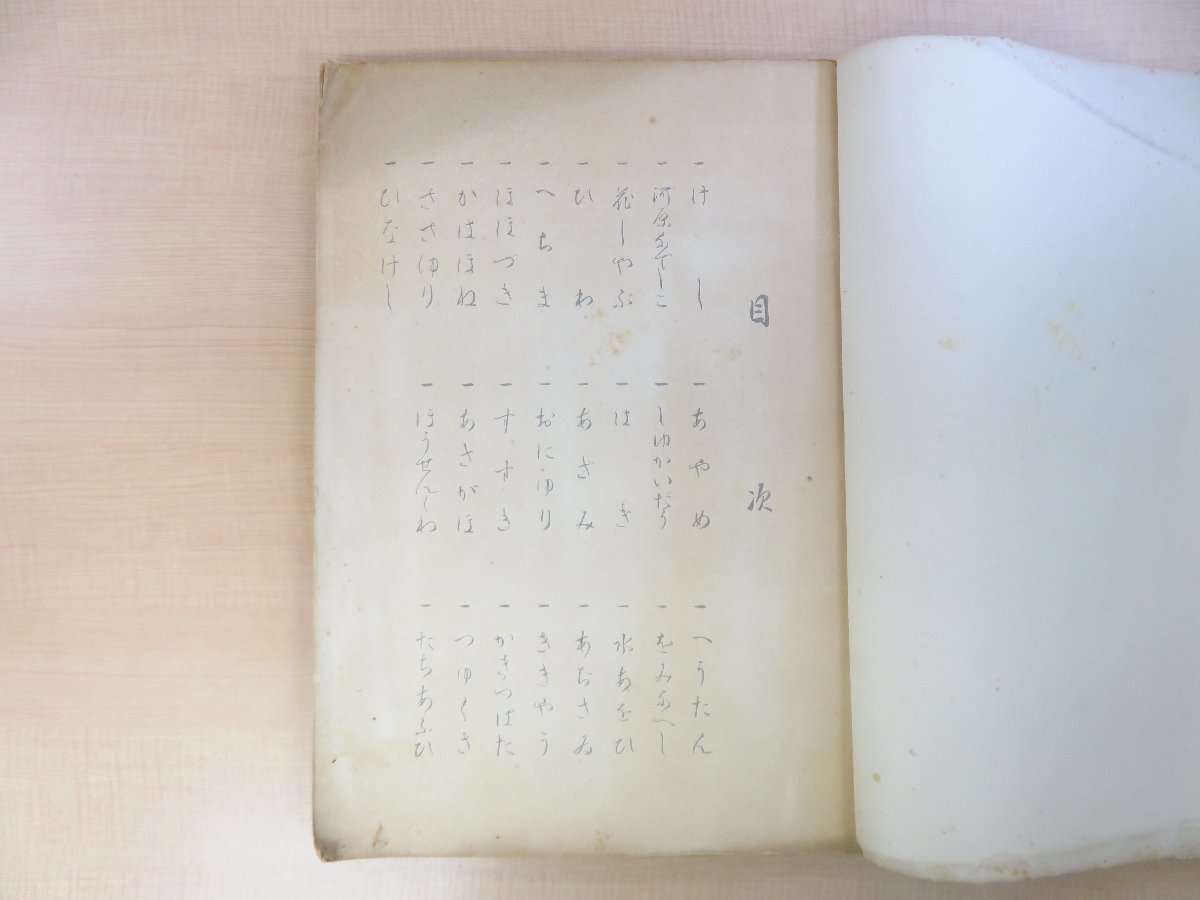 目次
一 けし 一 あやめ 一 へうたん
一 河原なでしこ 一 しゆかいだう 一 をみなへし
一 花しやぶ 一 はぎ 一 水あをひ
一 ひわ 一 あざみ 一 あぢさゐ
一 へちま 一 おにゆり 一 ききやう
一 ほほづき 一 すすき 一 かきつばた
一 かはほね 一 あさがほ 一 つゆくさ
一 ささゆり 一 ほうせんくわ 一 たちあふひ
一 ひなけし